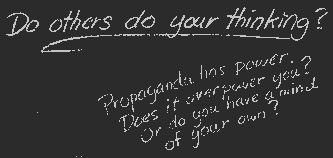 Do others do your thinking?
Propaganda has power.
Does it overpower you?
Or do you have a mind
of your own?